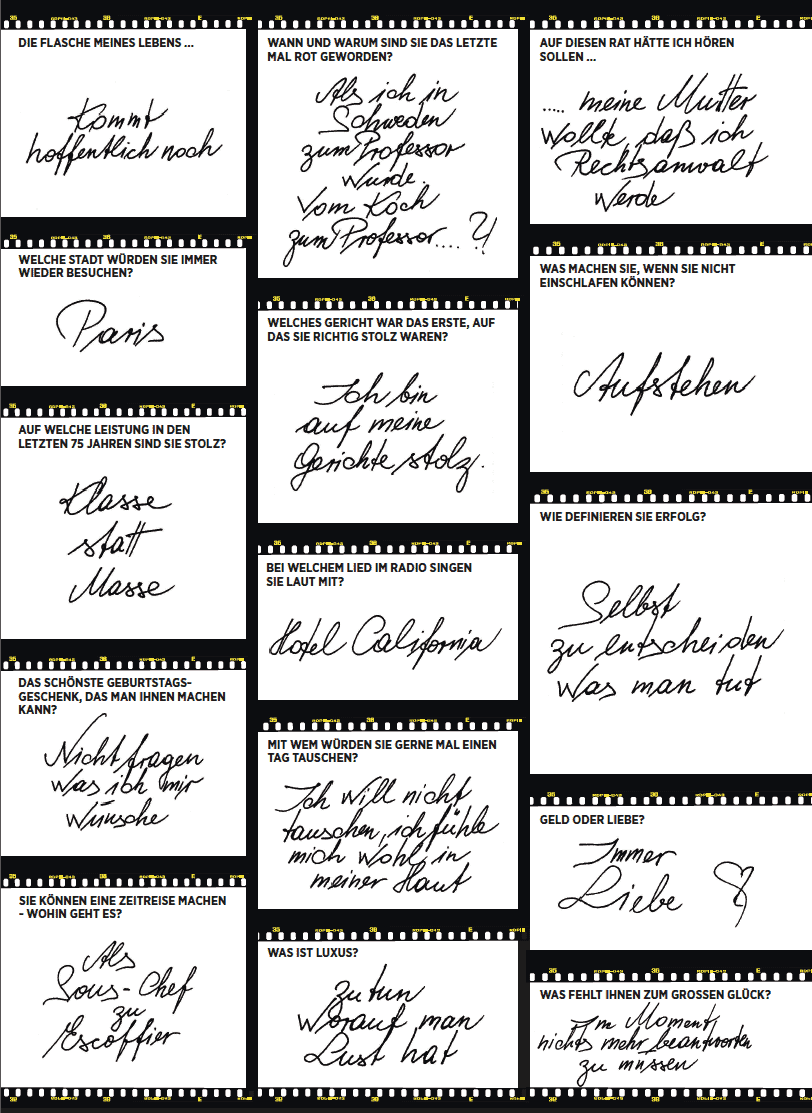 DIE FLASCHE MEINES LEBENS ...
Kommt
hoffentlich noch
WELCHE STADT WÜRDEN SIE IMMER
WIEDER BESUCHEN?
Paris
AUF WELCHE LEISTUNG IN DEN
LETZTEN 75 JAHREN SIND SIE STOLZ?
Klasse
statt
Masse
DAS SCHÖNSTE GEBURTSTAGS-
GESCHENK, DAS MAN IHNEN MACHEN
KANN?
Nicht fragen
was ich mir
wünsche
SIE KÖNNEN EINE ZEITREISE MACHEN
- WOHIN GEHT ES?
Als
Sous-Chef
zu
Escoffier
WANN UND WARUM SIND SIE DAS LETZTE
MAL ROT GEWORDEN?
Als ich in
Schweden
zum Professor
wurde.
Vom Koch
zum Professor.... ?!
WELCHES GERICHT WAR DAS ERSTE, AUF
DAS SIE RICHTIG STOLZ WAREN?
Ich bin
auf meine
Gerichte stolz.
BEI WELCHEM LIED IM RADIO SINGEN
SIE LAUT MIT?
Hotel California
MIT WEM WÜRDEN SIE GERNE MAL EINEN
TAG TAUSCHEN?
Ich will nicht
tauschen, ich fühle
mich wohl in
meiner Haut
WAS IST LUXUS?
zu tun
Worauf man
Lust hat
AUF DIESEN RAT HÄTTE ICH HÖREN
SOLLEN ...
..... meine Mutter
wollte, daß ich
Rechtsanwalt
werde
WAS MACHEN SIE, WENN SIE NICHT
EINSCHLAFEN KÖNNEN?
Aufstehen
WIE DEFINIEREN SIE ERFOLG?
Selbst
zu entscheiden
was man tut
GELD ODER LIEBE?
Immer
Liebe
WAS FEHLT IHNEN ZUM GROSSEN GLÜCK?
Im Moment,
nichts mehr beantworten
zu müssen